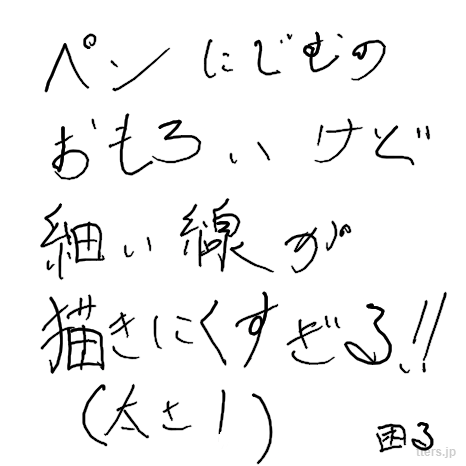 ペンにじむの
おもろいけど
細い線が
描きにくすぎる!!
(太さ1)
困る